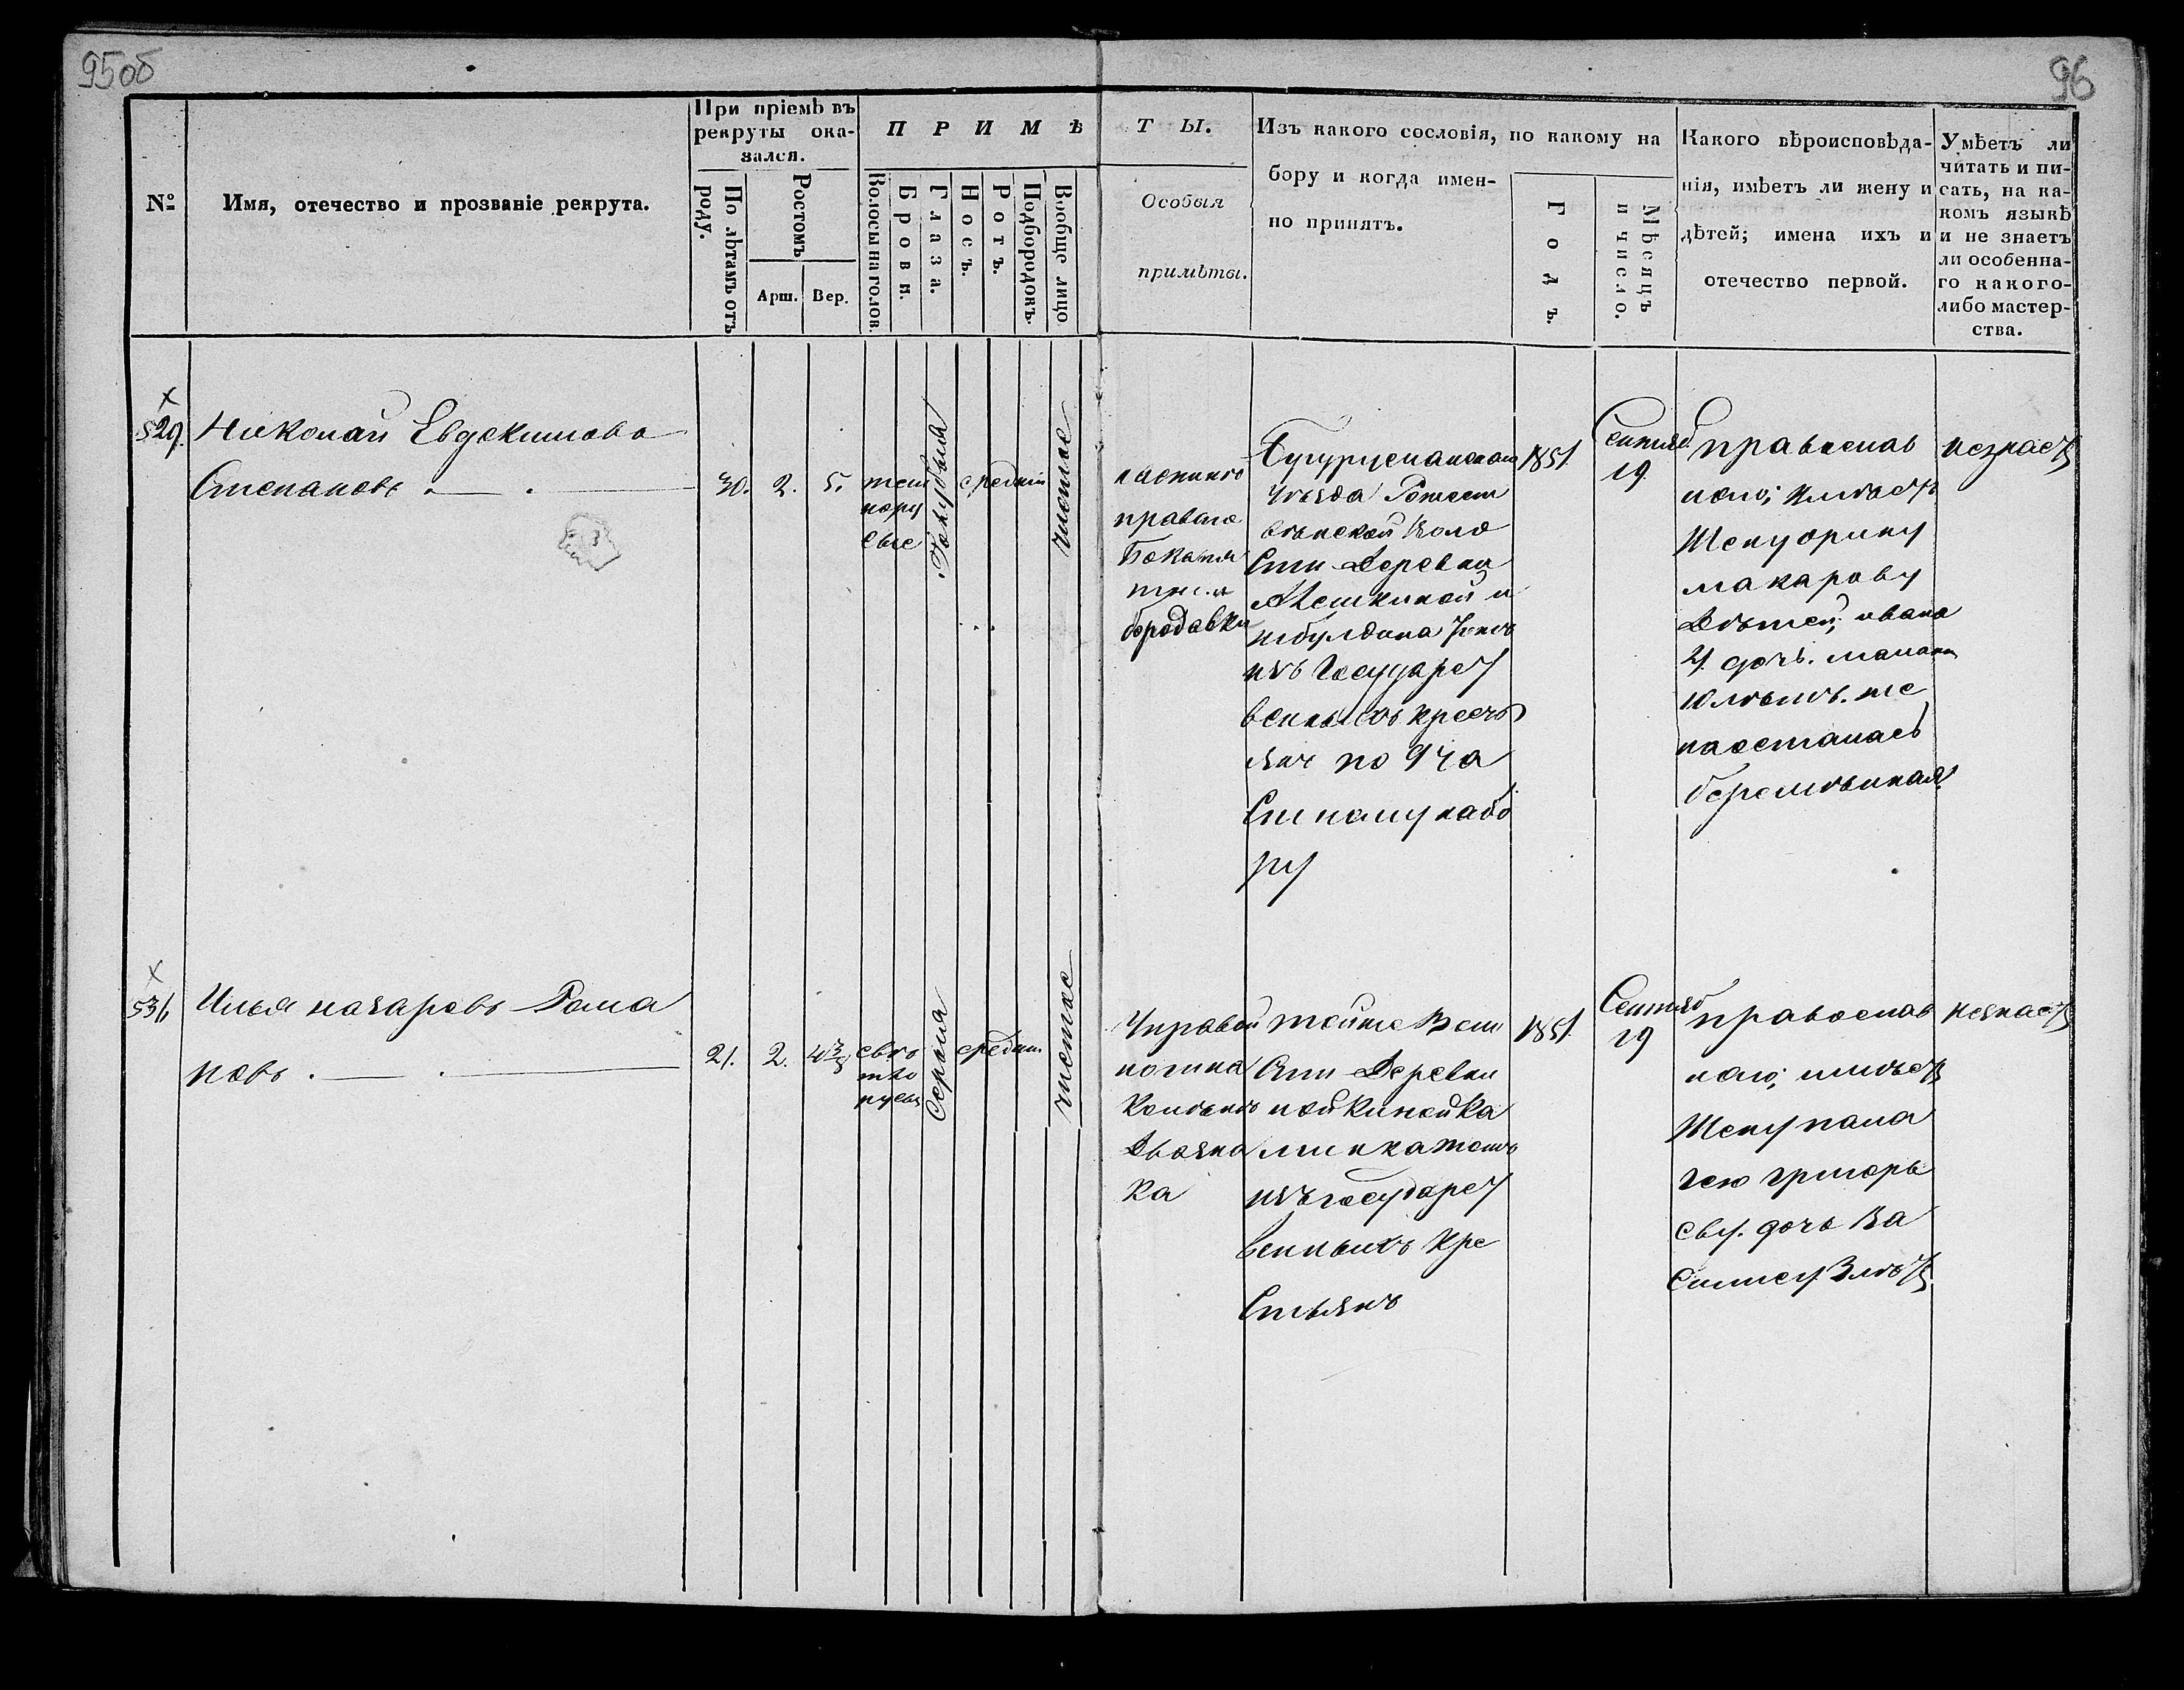 95об
96
№
Имя, отечество и прозваніе рекрута.
При пріемѣ въ
рекруты ока-
зался.
По лѣтамъ отъ
роду.
Ростомъ
Арш.
Вер.
ПРИМѢ
ТЫ.
Волосы на голов.
Брови.
Глаза.
Носъ.
Ротъ.
Подбородокъ.
Вообще лицо
Особыя
примѣты.
Изъ какого сословія, по какому на
бору и когда имен-
но принятъ.
Годъ.
Мѣсяцъ
и число.
Какого вѣроисповѣда-
нія, имѣетъ ли жену и
дѣтей; имена ихъ и
отечество первой.
Умѣетъ ли
читать и пи-
сать, на ка-
комъ языкѣ
и не знаетъ
ли особенна-
го какого-
либо мастер-
ства.
529.
Николай Евдокимовъ
Степановъ
30.
2.
5.
тем
нору
сые
Голубыя
средній
чистое
правого
бородавки
Бугурусланскаго
уѣзда Рожест
венской Воло
сти Деревни
изъ Государст
венныхъ кресть
янъ по 9 ча
стному набо
ру
1851.
Сентяб.
19
православ
наго; имѣетъ
Жену орину
макарову
Дѣтей; ивана
2. дочь. маланья
10 лѣтъ. же
на осталась
беременная
незнаетъ
531.
Илья назаровъ Рома
новъ
21.
2.
4 3/8
свѣ
тло
русыя
Серыя
средній
чистое
тойже Воло
сти Деревни
изъ государст
венныхъ кре
стьянъ
1851.
Сентяб
19
православ
наго; имѣетъ
Жену пала
гею григорь
еву. дочь Ва
силису. 3 лѣтъ
незнаетъ